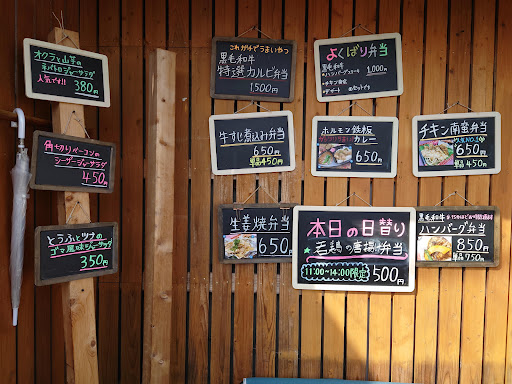 オクラと山芋の
ネバトロジャーサラダ
人気です!!
380円
角切りベーコンの
シーザージャーサラダ
450円
とうふとツナの
ゴマ風味ジャーサラダ
350円
これガチでうまいやつ
黒毛和牛
特選カルビ弁当
1,500円
よくばり弁当
黒毛和牛
・ハンバーグ
1,000円
・チキン南蛮
牛すじ煮込み弁当
650円
単品450円
ホルモン鉄板
カレー
650円
チキン南蛮弁当
650円
単品450円
生姜焼弁当
650円
本日の日替り
★若鶏の唐揚弁当
11:00~14:00限定
500円
黒毛和牛
ハンバーグ弁当
850円
単品750円